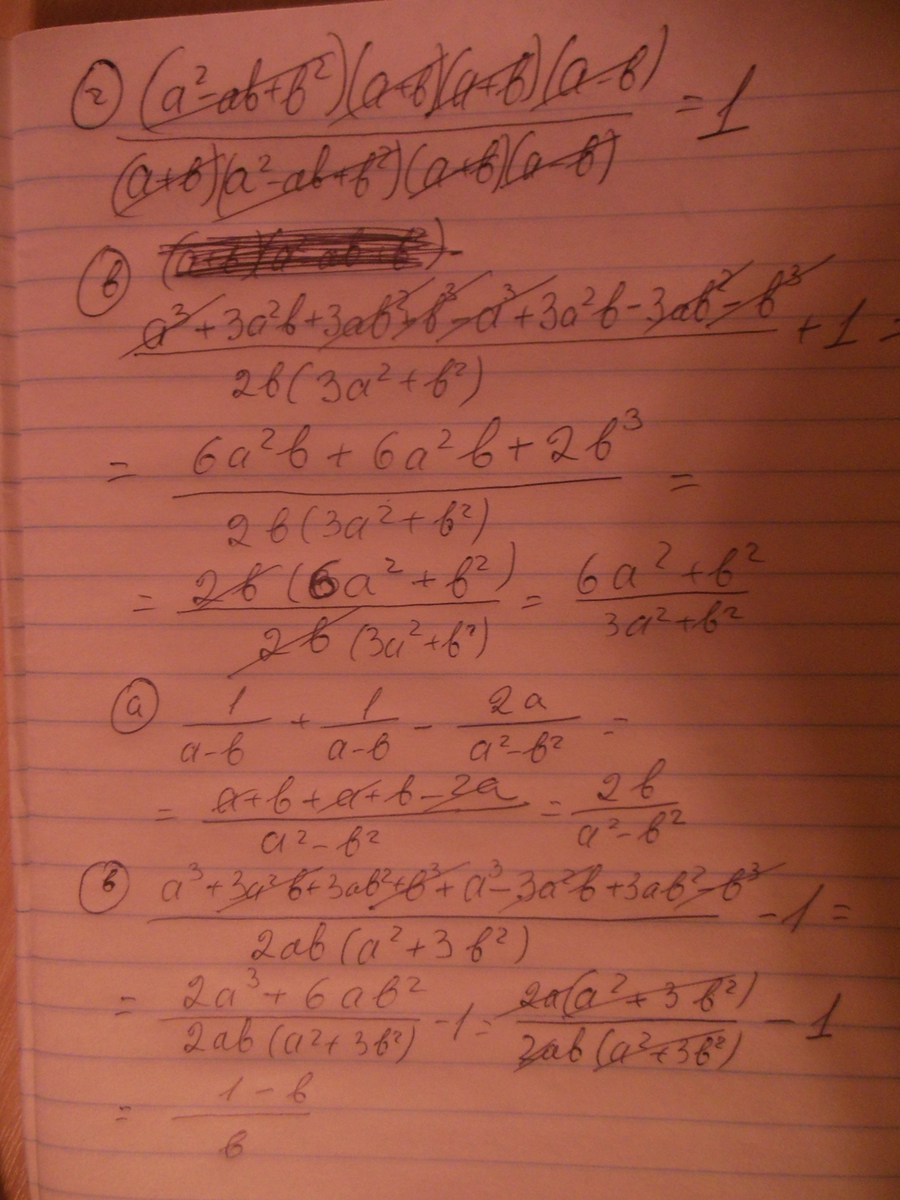 г) (a²-ab+b²)(a+b)(a+b)(a-b) / (a+b)(a²-ab+b²)(a+b)(a-b) = 1
в) a³+3a²b+3ab²-b³-a³+3a²b-3ab²-b³ / 2b(3a²+b²) + 1 =
= 6a²b+6a²b+2b³ / 2b(3a²+b²) =
= 2b(6a²+b²) / 2b(3a²+b²) = 6a²+b² / 3a²+b²
а) 1 / a-b + 1 / a-b - 2a / a²-b² =
= a+b+a+b-2a / a²-b² = 2b / a²-b²
б) a³+3a²b+3ab²+b³+a³-3a²b+3ab²-b³ / 2ab(a²+3b²) - 1 =
= 2a³+6ab² / 2ab(a²+3b²) - 1 = 2a(a²+3b²) / 2ab(a²+3b²) - 1
= 1-b / b